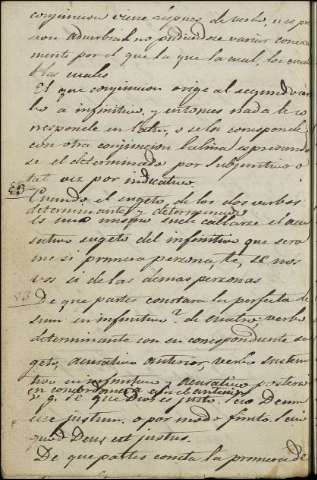 conjuncion viene despues de verbo, no es pro
nom adverbial no pudiendose variar
mente por el que la que la cual, los cuales
las cuales
El que conjuncion rige al segundo ver
bo a infinitivo, y entonces nada le co
rresponde en latin, o se los corresponde
con otra conjuncion latina espresando
se el determinado por subjuntivo o
tal vez por indicativo
Cuando el sugeto de los dos verbos
determinante y determinado
es uno mismo suele callarse el acu
sativo sugeto del infinitivo que sera
me si primera persona, te, se nos
vos si de las demas personas
De que partes constara la perfecta de
sum en infinitivo? de cuatro, verbo
determinante con su correspondiente su
geto, acusativo anterior, verbo sustan
tivo en infinitivo y acusativo posterior
en concordancia con el anterior
v. g. se que Dios es justo scio Deum
esse justum. o por modo finito. scio
quod Deus est justus.
De que partes consta la primera de